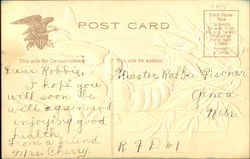 POST CARD
This side for Correspondence
This side for Address
Dear Robbie,
I hope you
will soon be
well again and
enjoying good
health,
from a friend
Mrs Cherry.
Master Robbie Fischer
Genoa
Nebr.
R F D #1